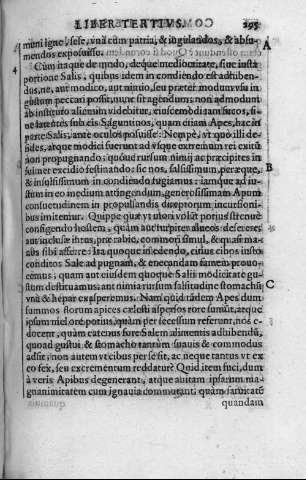 LIBER TERTIVS. 295
muni igne, sese, vnà cum patria, & iugulandos, & absu- A
mendos exposuisse.
Cum itaque de modo, deque mediocritate, siue iusta
portione Salis, quibus idem in condiendo est adhibendus,
ne, aut modico, aut nimio, seu præter modum vsu in
gustum peccari possit, nunc sit agendum: non admodum
ab instituto alienum videbitur, eiuscemodi tam suos, si-
ne latentes sub eis Saguntinos, quam etiam Apes, hac in
parte Salis, ante oculos posuisse: Nempè, vt quo illi de-
sides, atque modici fuerunt ad vsque extremum rei exitū
non propugnando: quóue rursum nimij ac præcipites in
sui met excidio festinando: sic nos, falsissimum, peræque,
& insulsissimum in condiendo fugiamus: iamque ad iu-
stum in eo medium attingendum, generosissimam Apum
consuetudinem in propulsandis direptorum incursioni-
bus imitemur. Quippe quæ vt vltrò volūt potius strenuè
consigendo hostem, quàm aut turpiter alueos deserere,
aut inclusæ intus, præ rabie, commori simul, & quasi ma-
nus sibi afferre: Ita quoque nos edendo, citius cibos iustè
conditos Sale ad pugnam, & enecandam famem prouo-
cemus; quam aut eiusdem quoque Salis modicitate gu-
stum destituamus: aut nimia rursum falsitudine stomachū
vnà & hepar exasperemus. Nam quid tandem Apes dum C
summos florum apices cælesti aspersos rore sumūt, atque
ipsum mel ore potius, quàm per secessum referunt, nos e-
docent, quàm catenus fore Salem alimentis adhibendū,
quoad gustui & stomacho tantùm suauis & commodus
adsit: non autem vt cibus per se sit, ac neque tantus vt ex
eo fex, seu excrementum reddatur? Quid item fuci, dum
à veris Apibus degenerant, atque auitam ipsarum ma-
gnanimitatem cum ignauia commutant: quàm saturitatē
quandam
B